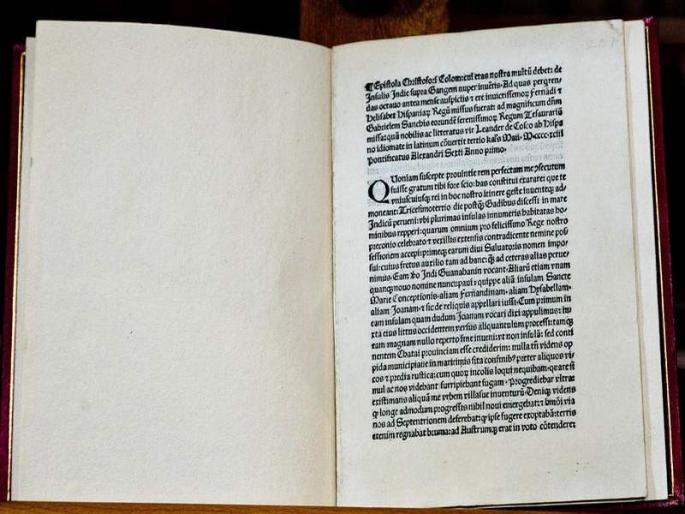 ¶Epistola Christofori Colom: cui etas nostra multū debet: de
Insulis Indie supra Gangem nuper inuētis. Ad quas perqren-
das octauo antea mense auspiciis et ere inuictissimoꝝ Fernādi et
Helisabet Hispaniaꝝ Regū missus fuerat: ad magnificum dñm
Gabrielem Sanchis eorundē serenissimoꝝ Regum Tesaurariū
missa: quā nobilis ac litteratus vir Leander de Cosco ab Hispa
no idiomate in latinum cōuertit tertio kaľs Maii · M·cccc·xciii
Pontificatus Alexandri Sexti Anno primo.
Quoniam suscepte prouintie rem perfectam me ↄsecutum
fuisse gratum tibi fore scio: has constitui exarare: que te
vniuscuiusꝗ rei in hoc nostro itinere geste inuenteꝗ ad-
moneant: Tricesimotertio die postꝗ̄ Gadibus discessi in mare
Indicū perueni: vbi plurimas insulas innumeris habitatas ho-
minibus repperi: quarum omnium pro felicissimo Rege nostro
preconio celebrato et vexillis extensis contradicente nemine pos-
sessionem accepi: primeꝗ earum diui Saluatoris nomen impo-
sui: cuius fretus auxilio tam ad hanc: ꝗ̄ ad ceteras alias perue-
nimus. Eam ꝟo Indi Guanahanin vocant. Aliarū etiam vnam
quanꝗ nouo nomine nuncupaui: quippe aliā insulam Sancte
Marie Conceptionis · aliam Fernandinam · aliam Hysabellam ·
aliam Joanam · et sic de reliquis appellari iussi. Cum primum in
eam insulam quam dudum Joanam vocari dixi appulimus: iu-
xta eius littus occidentem versus aliquantulum processi: tamꝗ
eam magnam nullo reperto fine inueni: vt non insulā: sed conti
nentem Chatai prouinciam esse crediderim: nulla tn̄ videns op
pida municipiaue in maritimis sita confinibꝰ preter aliquos vi-
cos et predia rustica: cum quoꝝ incolis loqui nequibam · quare si
mul ac nos videbant surripiebant fugam · Progrediebar vltra:
existimans aliquā me vrbem villasue inuenturū · Deniꝗ videns
ꝙ longe admodum progressis nihil noui emergebat: et hmōi via
nos ad Septentrionem deferebat: ꝙ ipse fugere exoptabā: terris
etenim regnabat bruma: ad Austrumꝗ erat in voto cōtendere: